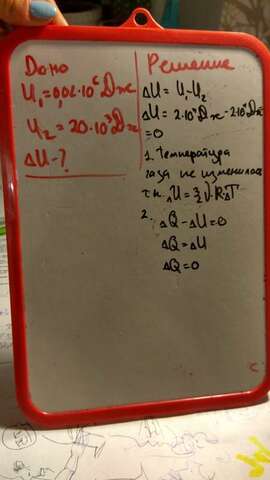 Дано
U₁=0,02·10⁶Дж
U₂=20·10³Дж
ΔU-?
Решение
ΔU=U₁-U₂
ΔU=2·10⁴Дж-2·10⁴Дж
=0
1. Температура
газа не изменилась
т.к. ΔU=3/2ν·RΔT
2.
ΔQ-ΔU=0
ΔQ=ΔU
ΔQ=0